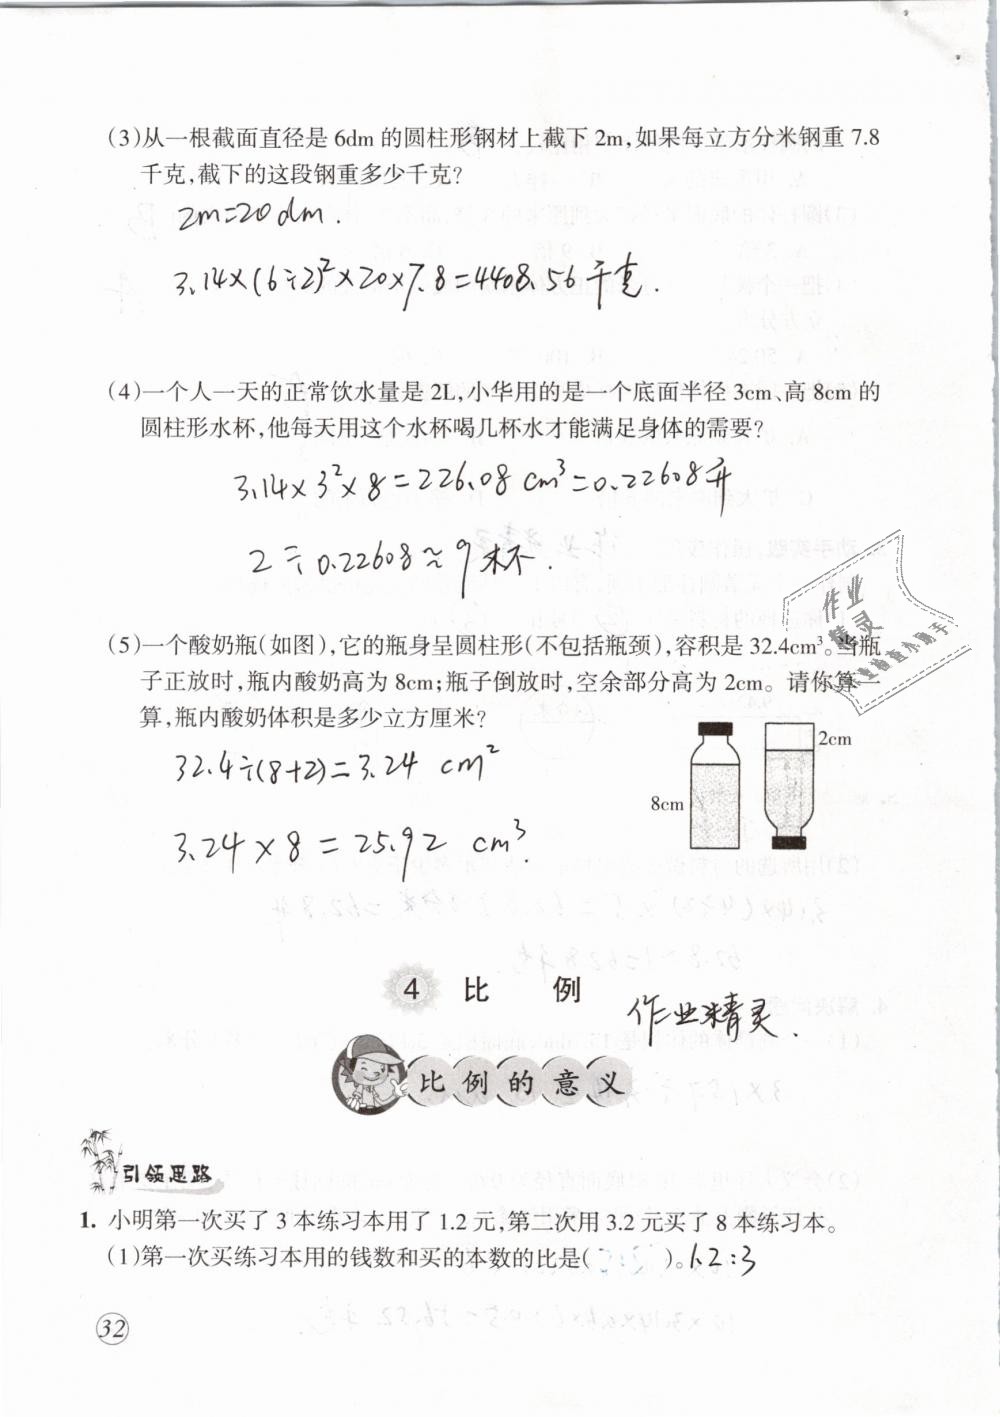 (3)从一根截面直径是 6dm 的圆柱形钢材上截下 2m,如果每立方分米钢重 7.8
千克,截下的这段钢重多少千克?
2m=20dm.
3.14×(6÷2)²×20×7.8=4408.56千克.
(4)一个人一天的正常饮水量是 2L,小华用的是一个底面半径 3cm、高 8cm 的
圆柱形水杯,他每天用这个水杯喝几杯水才能满足身体的需要?
3.14×3²×8=226.08 cm³=0.22608升
2÷0.22608≈9杯.
作业
精灵
作业检查小助手
(5)一个酸奶瓶(如图),它的瓶身呈圆柱形(不包括瓶颈),容积是 32.4cm³。当瓶
子正放时,瓶内酸奶高为 8cm;瓶子倒放时,空余部分高为 2cm。请你算一
算,瓶内酸奶体积是多少立方厘米?
32.4÷(8+2)=3.24 cm²
2cm
8cm
3.24×8=25.92 cm³.
4 比 例
作业精灵.
比例的意义
引领思路
1. 小明第一次买了 3 本练习本用了 1.2 元,第二次用 3.2 元买了 8 本练习本。
(1)第一次买练习本用的钱数和买的本数的比是( )。1.2:3
32